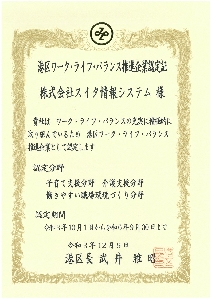 港区ワーク・ライフ・バランス推進企業認定証
株式会社スイタ情報システム 様
貴社は、ワーク・ライフ・バランスの充実に積極的に
取り組んでいるため 港区ワーク・ライフ・バランス
推進企業として認定します
認定分野
子育て支援分野 介護支援分野
働きやすい職場環境づくり分野
認定期間
月1日から令和6年9月30日まで
令和3年12月9日
港区長 武井 雅昭